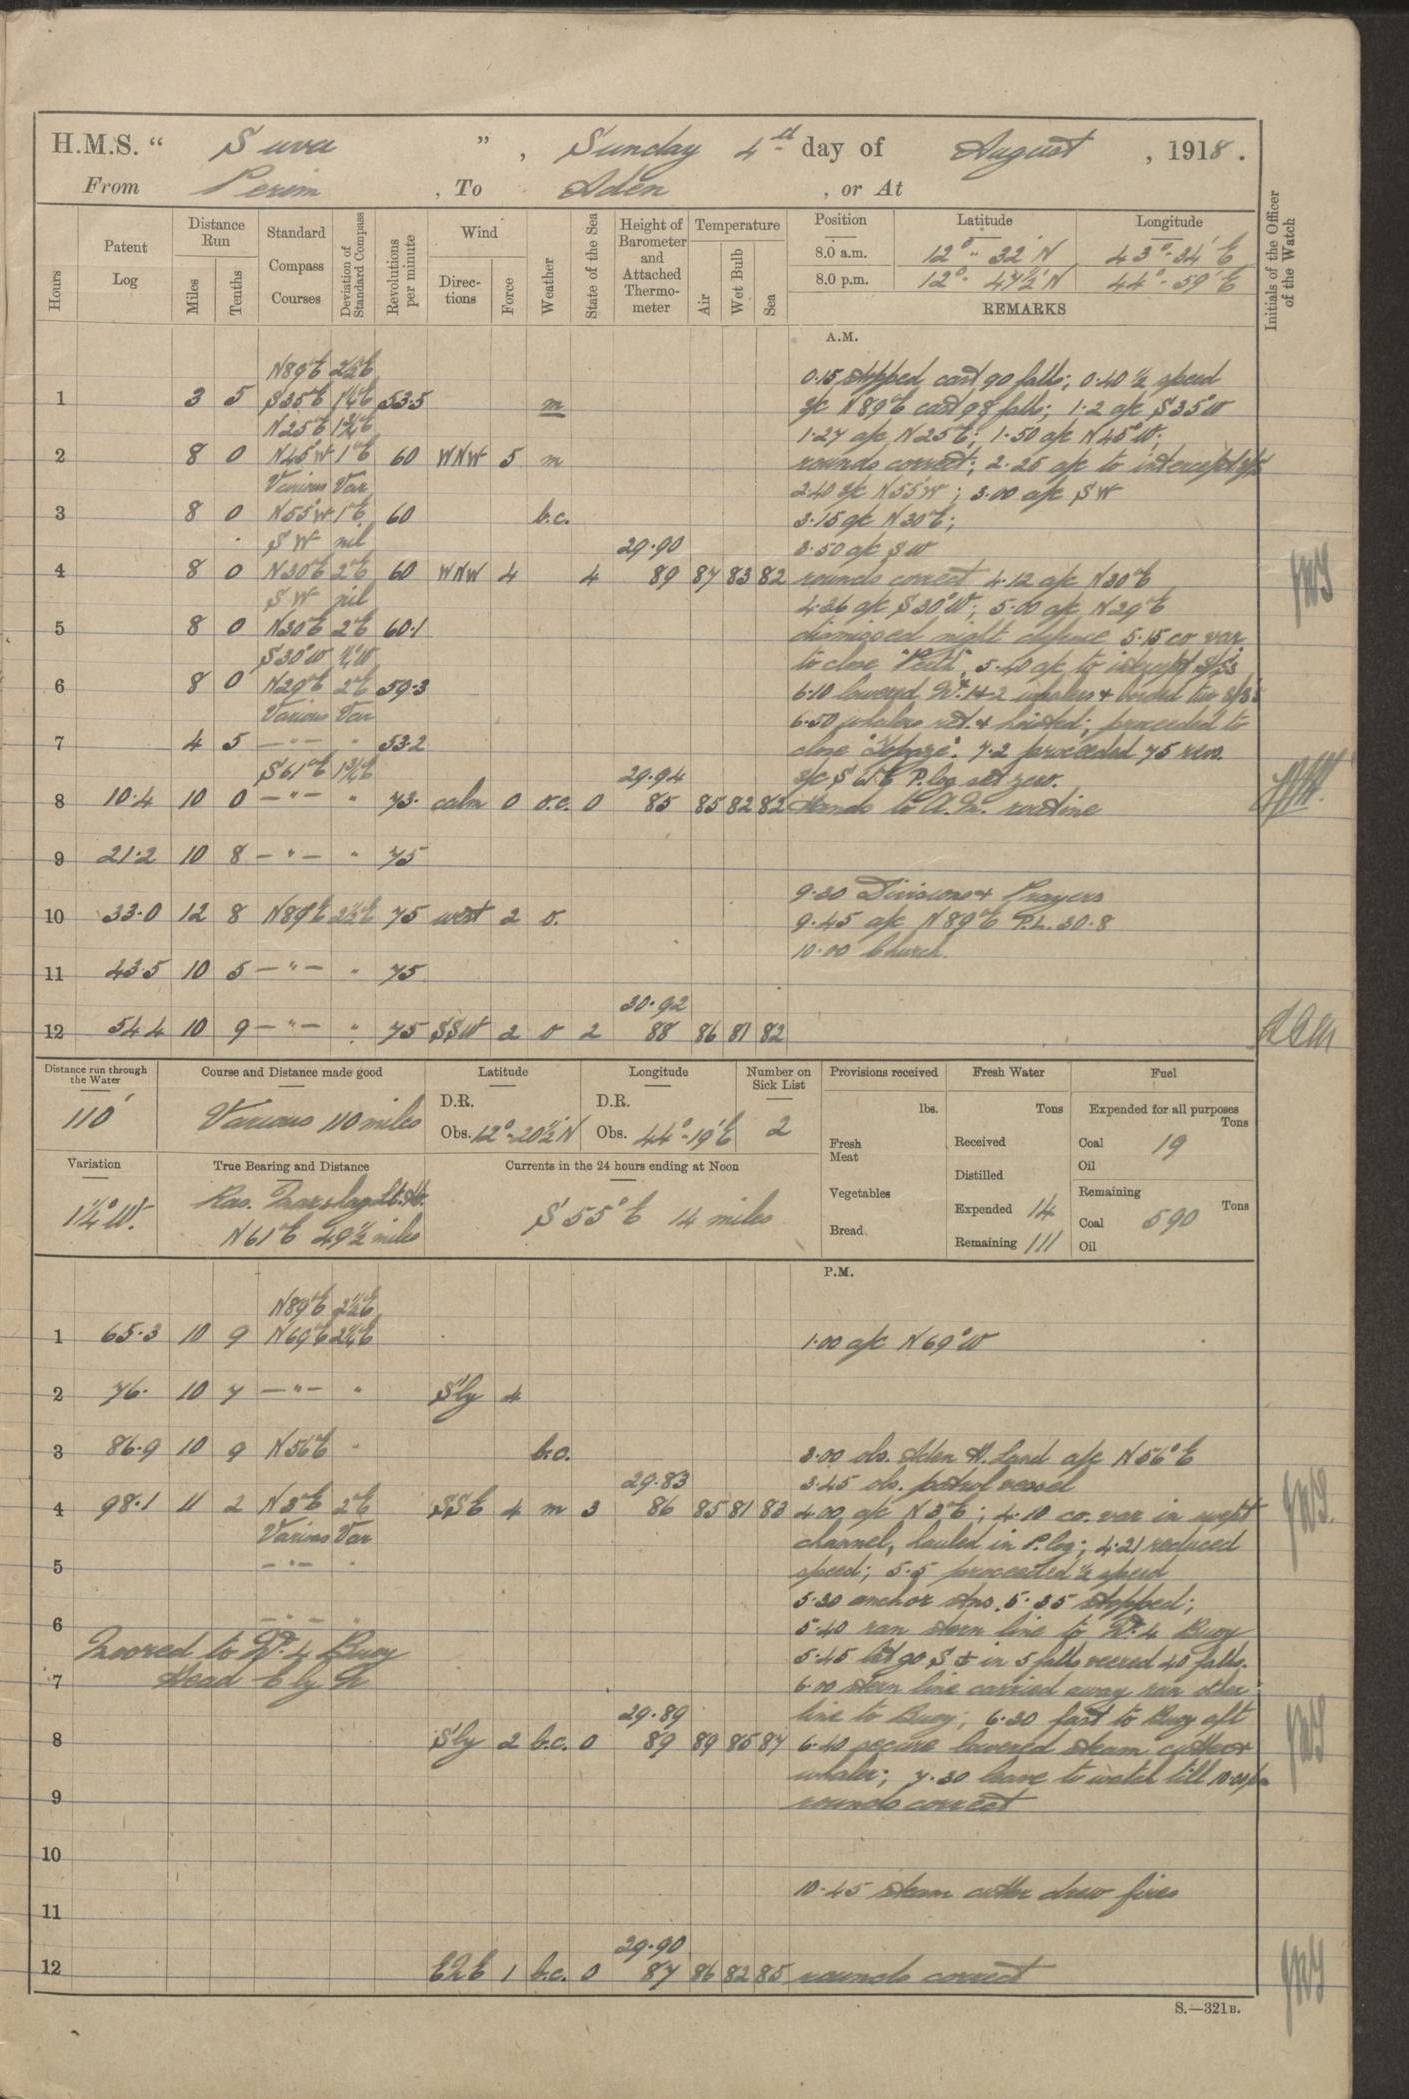 H.M.S. “ Suva ” , Sunday 4th day of August , 1918 .
From Perim , To Aden , or At
Hours
Patent Log
Distance Run
Miles
Tenths
Standard Compass Courses
Deviation of Standard Compass
Revolutions per minute
Wind
Directions
Force
Weather
State of the Sea
Height of Barometer and Attached Thermometer
Temperature
Air
Wet Bulb
Sea
Position
Latitude
Longitude
8.0 a.m. 12° - 32' N 43° - 34' E
8.0 p.m. 12° - 47½' N 44° - 59' E
REMARKS
Initials of the Officer of the Watch
A.M.
N89°E 2½°E
0.15 stopped cast 90 faths; 0.40 ½ speed
1 3 5 S35°E 1¼°E 53.5 m
s/c N89°E cast 98 faths; 1.2 a/c S35°W
N25°E 1¾°E
1.27 a/c N25°E; 1.50 a/c N45°W.
2 8 0 N45°W 1°E 60 WNW 5 m
rounds correct; 2.25 a/c to intercept
Various Var
2.40 s/c N55°W; 3.00 a/c SW
3 8 0 N55°W 1°E 60 b.c.
3.15 a/c N30°E;
SW nil 29.90
3.50 a/c SW
4 8 0 N30°E 2°E 60 WNW 4 4 89 87 83 82
rounds correct 4.12 a/c N30°E
SW nil
4.36 a/c S30°W; 5.00 a/c N29°E
5 8 0 N30°E 2°E 60.1
dismissed night defence 5.15 co var
S30°W ½°W
to close "Perth", 5.40 a/c to intercept S/Ss
6 8 0 N29°E 2°E 59.3
6.10 lowered No. 1 & 2 whalers & boarded two S/S's
Various Var
6.50 whalers ret. & hoisted; proceeded to
7 4 5 — " — " 53.2
close "Topaze". 7.2 proceeded 75 revs.
S61°E 1¾°E 29.94
s/c S61°E P.log set zero.
8 10.4 10 0 — " — " 73. calm 0 o.c. 0 85 85 82 82
Hands to A.M. routine
9 21.2 10 8 — " — " 75
9.30 Divisions & Prayers
10 33.0 12 8 N89°E 2½°E 75 west 2 o.
9.45 a/c N89°E P.L. 30.8
10.00 Church.
11 43.5 10 5 — " — " 75
30.92
12 54.4 10 9 — " — " 75 SSW 2 o 2 88 86 81 82
Distance run through the Water
110'
Course and Distance made good
Various 110 miles
Latitude
D.R.
Obs. 12° - 20½' N
Longitude
D.R.
Obs. 44° - 19' E
Number on Sick List
2
Provisions received
lbs.
Fresh Meat
Vegetables
Bread
Fresh Water
Tons
Received
Distilled
Expended 14
Remaining 111
Fuel
Expended for all purposes
Tons
Coal 19
Oil
Remaining
Tons
Coal 590
Oil
Variation
1¼° W.
True Bearing and Distance
Ras. Marshag Lt. Ho.
N61°E 49½ miles
Currents in the 24 hours ending at Noon
S 55° E 14 miles
P.M.
N89°E 2½°E
1 65.3 10 9 N69°E 2¼°E
1.00 a/c N69°W
2 76. 10 7 — " — " S'ly 4
3 86.9 10 9 N56°E " b.c.
3.00 obs. Aden H. Land a/c N56°E
29.83
3.45 obs. patrol vessel
4 98.1 11 2 N3°E 2°E SSE 4 m 3 86 85 81 83
4.00 a/c N3°E; 4.10 co. var in swept
Various Var
channel, hauled in P.log; 4.21 reduced
5 — " — "
speed; 5.5 proceeded ½ speed
5.30 anchor stns. 5.35 stopped;
6 — " —
5.40 ran stern line to No. 4 Buoy
Moored to No. 4 Buoy
5.45 let go S ⚓ in 5 faths veered 40 faths.
7 Head E by N
6.00 stern line carried away ran other
29.89
line to Buoy; 6.30 fast to Buoy aft
8 S'ly 2 b.c. 0 89 89 85 84
6.40 secure lowered steam cutter &
whaler; 7.30 leave to watch till 10.30pm
9
rounds correct
10
10.45 steam cutter drew fires
11
29.90
12 ENE 1 b.c. 0 87 86 82 85 rounds correct
S.—321B.